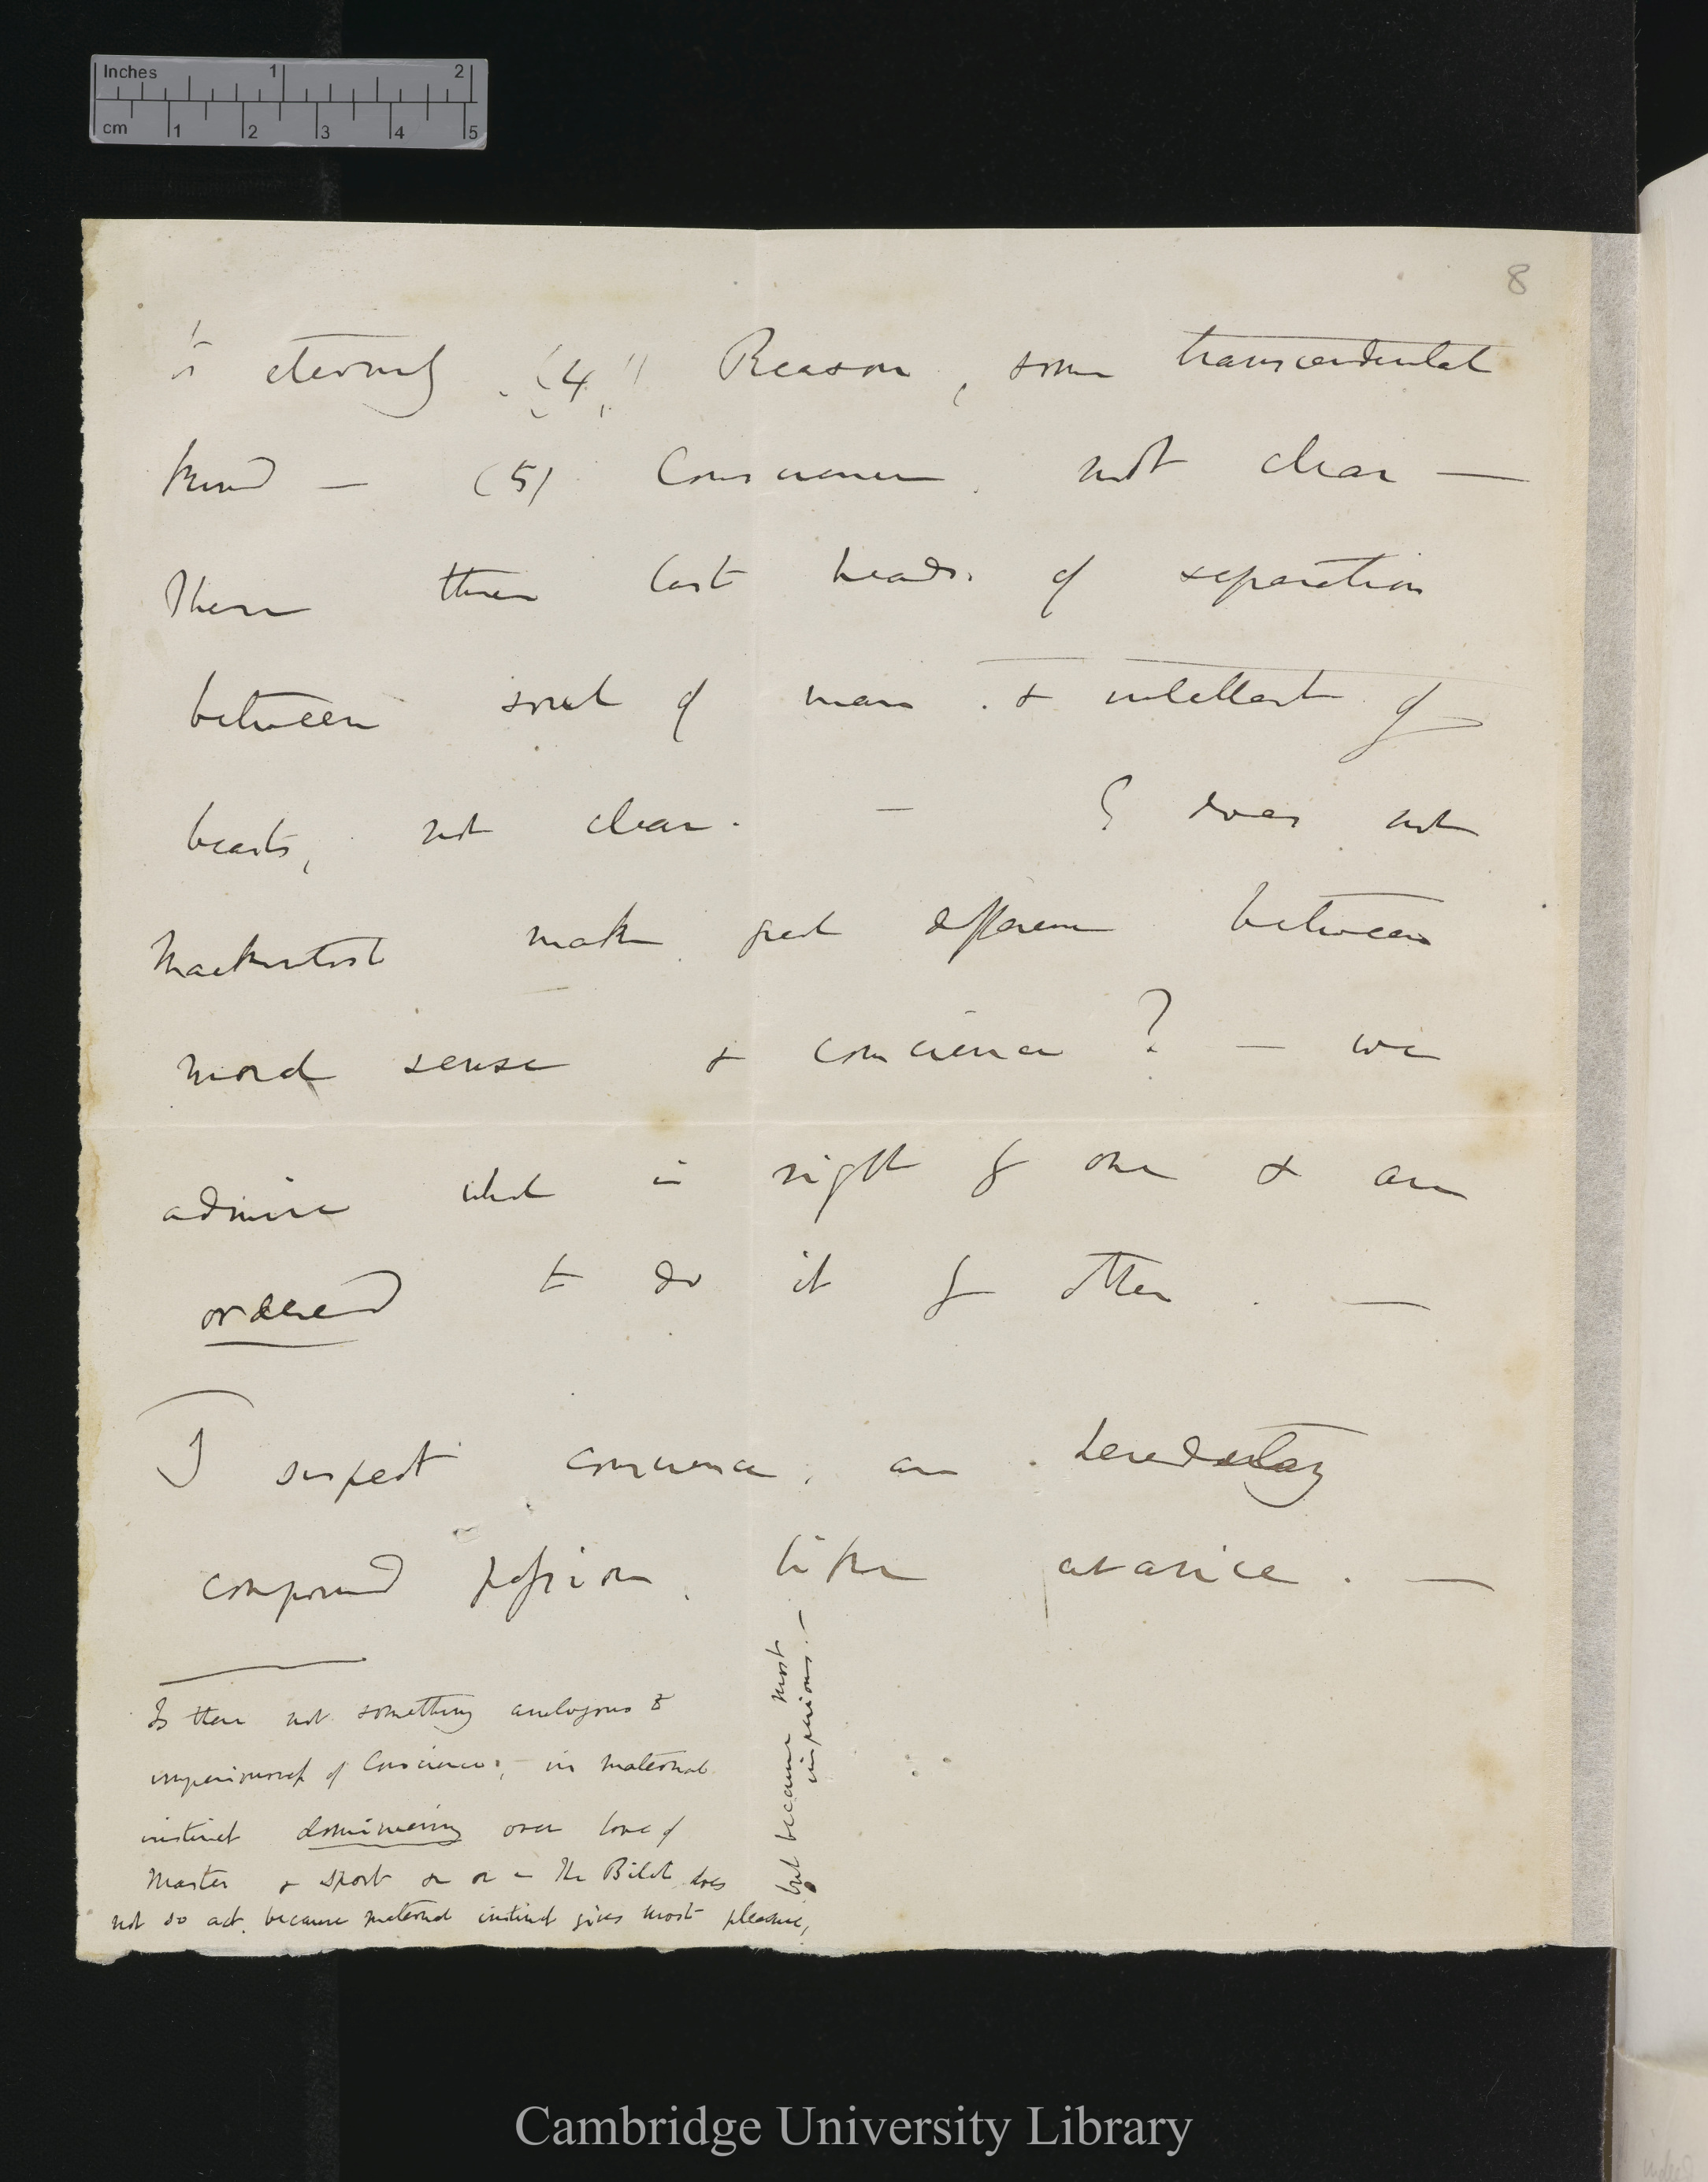 Inches 1 2
cm 1 2 3 4 5
8
to eternity. (4) Reason, some transcendental
kind — (5) Conscience, not clear —
These three last heads of separation
between soul of man & intellect of
beasts, not clear. — does not
Mackintosh make great difference between
moral sense & conscience? — we
admire what is right by one & are
ordered to do it by other. —
I suspect conscience, an hereditary
compound passion, like avarice. —
Is there not something analogous to
imperiousness of Conscience, — in maternal
instinct domineering over love of
Master & sport — The Bitch does
not so act, because maternal instinct gives most pleasure,
but because most
imperious. —
Cambridge University Library